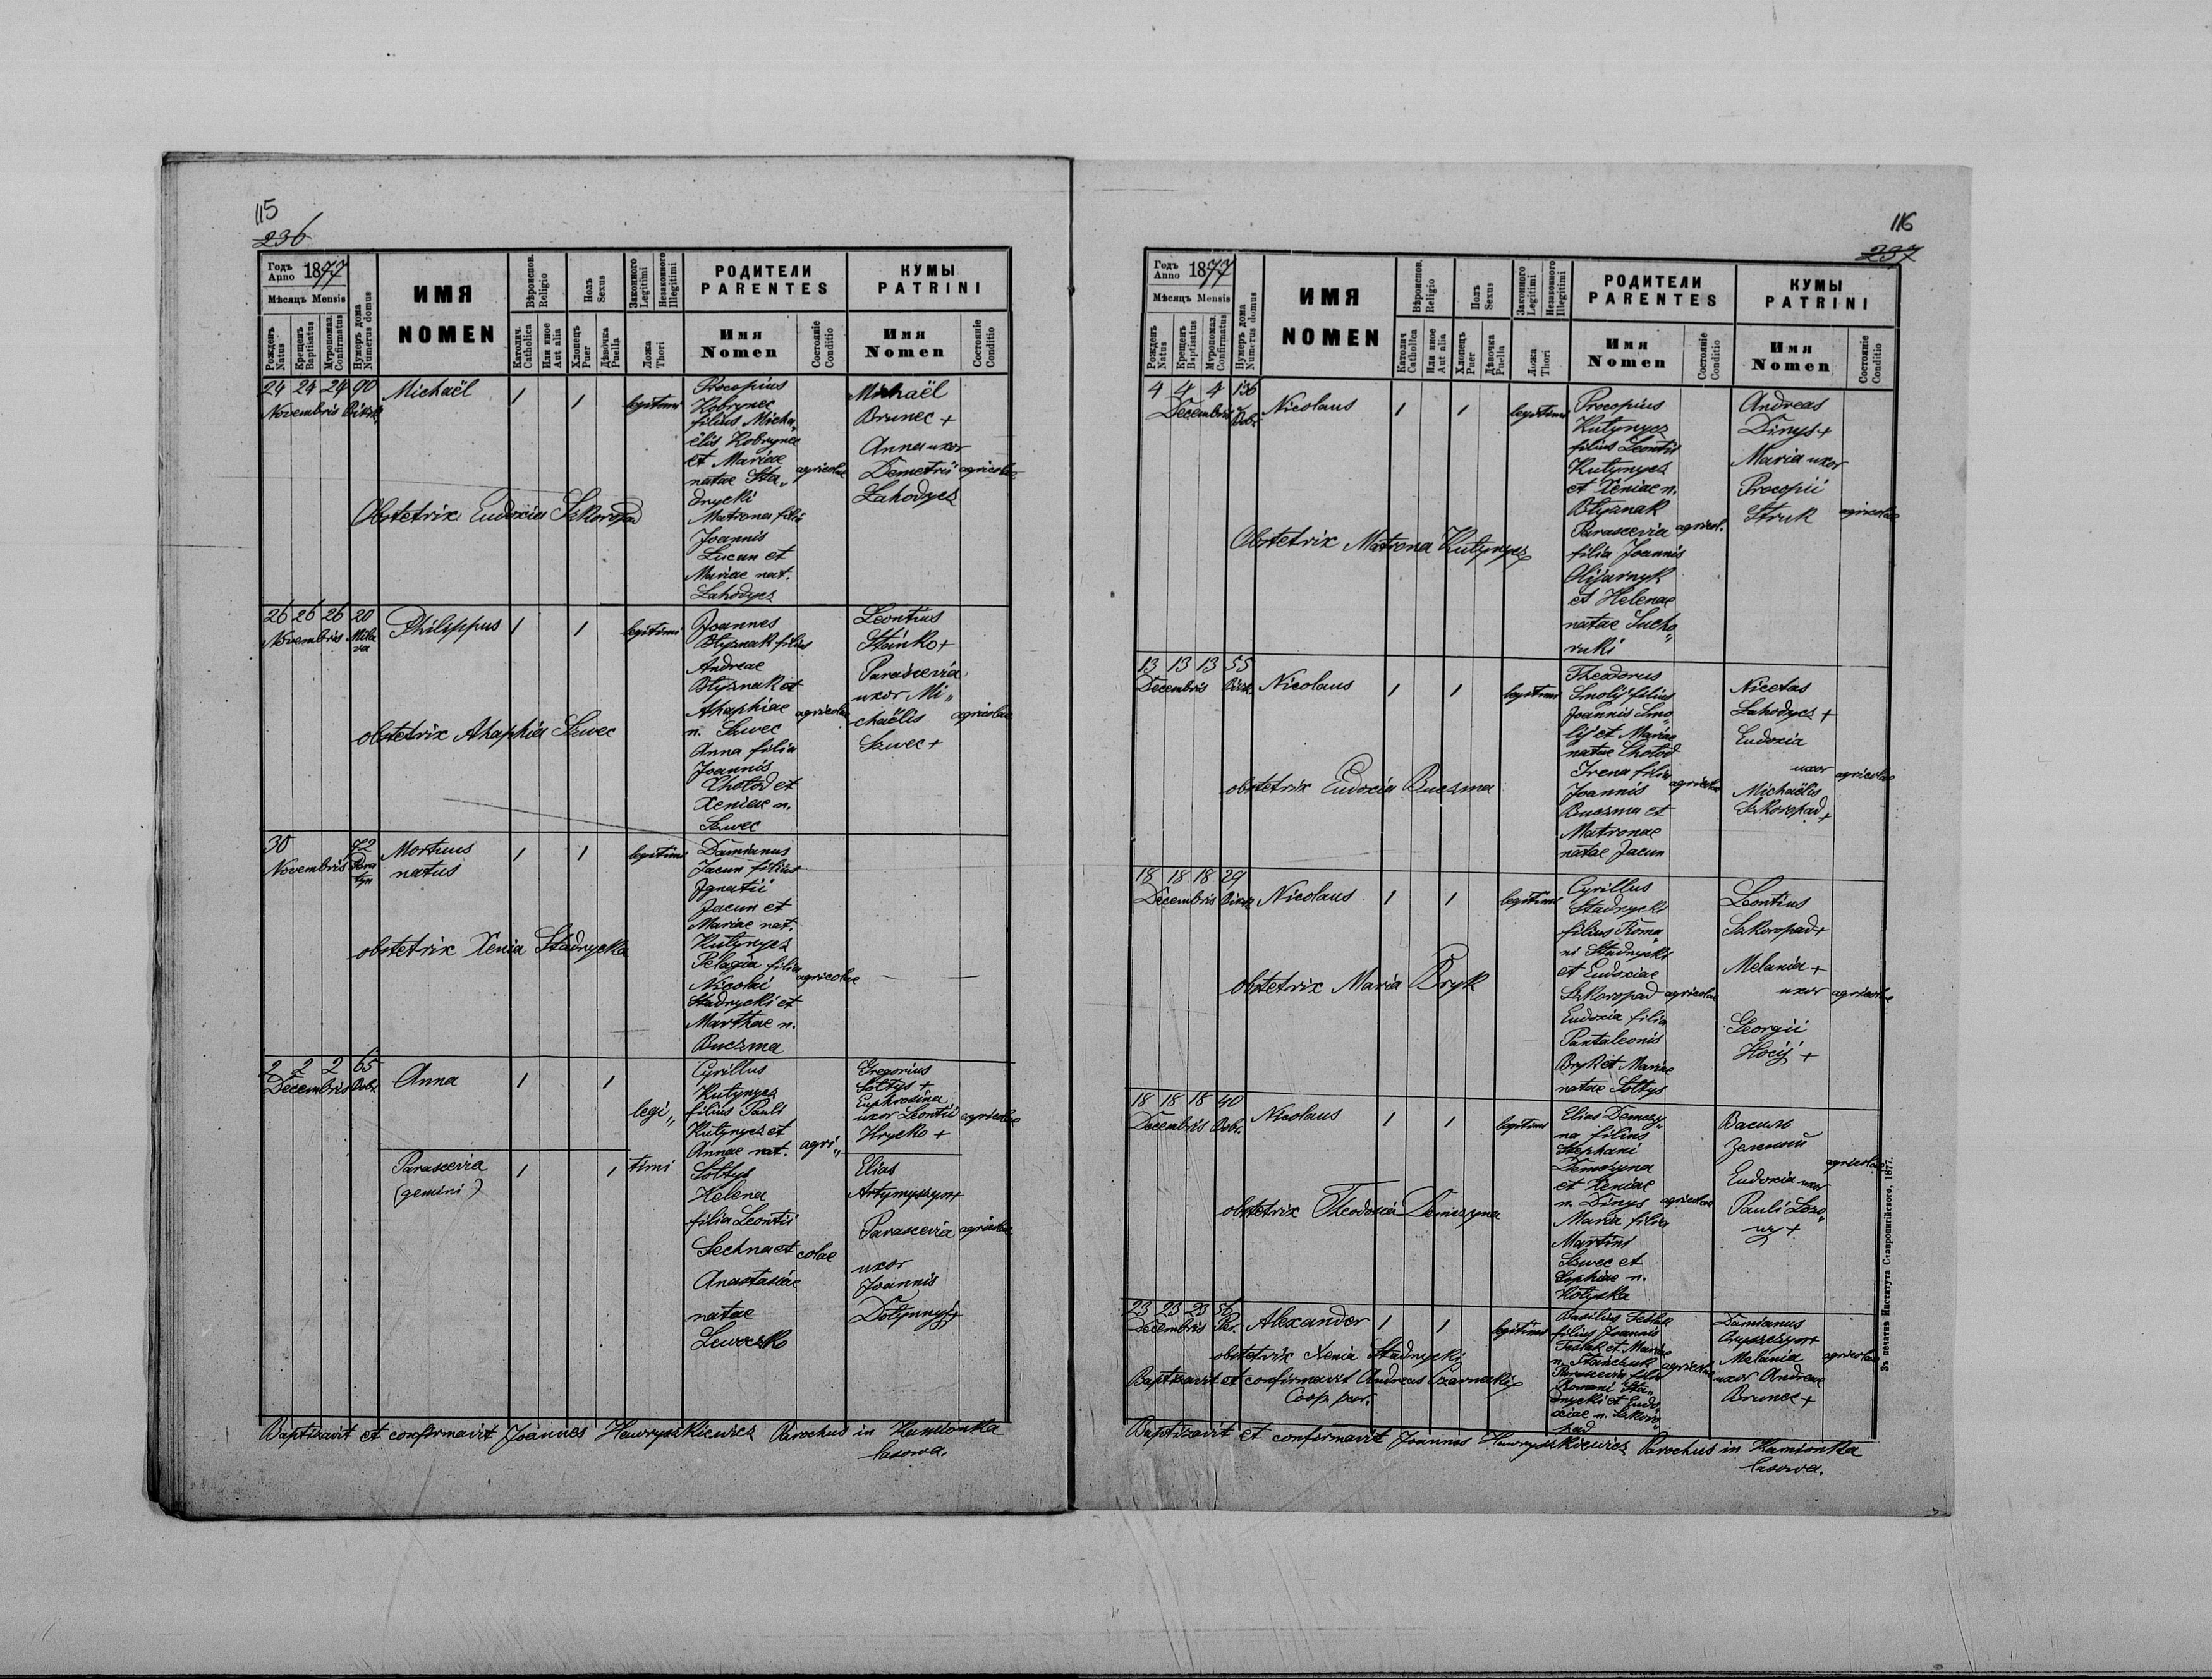 115
236
Годъ Anno 1877
Мѣсяцъ Mensis
Рожденъ Natus
Крещенъ Baptisatus
Мѵропомаз. Confirmatus
Нумеръ дома Numerus domus
ИМЯ
NOMEN
Вѣроиспов. Religio
Католич. Catholica
Или иное Aut alia
Полъ Sexus
Хлопецъ Puer
Дѣвочка Puella
Законного Legitimi
Незаконного Illegitimi
Ложа Thori
РОДИТЕЛИ
PARENTES
Имя
Nomen
Состояніе Conditio
КУМЫ
PATRINI
Имя
Nomen
Состояніе Conditio
24 24 24 90
Novembris
Michaël
1 1
legitimi
Procopius
Kobrynec
filius Micha„
ëlis Kobrynec
et Mariae
natae Sta„
dnycki
Matrona filia
Joannis
Lucun et
Mariae nat.
Lahodycz
agricolae
Michaël
Brunec +
Anna uxor
Demetrii
Lahodycz
agricolae
Obstetrix Eudoxia Szkoropad
26 26 26 20
Novembris
Mila
va
Philippus
1 1
legitimi
Joannes
Błyznak filius
Andreae
Błyznak et
Ahaphiae
n. Szwec
Anna filia
Joannis
Chołod et
Xeniae n.
Szwec
agricolae
Leontius
Stańko +
Parascevia
uxor Mi„
chaëlis
Szwec +
agricolae
obstetrix Ahaphia Szwec
30
72
Novembris
Mortuus
natus
1 1
legitimi
Damianus
Jacun filius
Ignatii
Jacun et
Mariae nat.
Kutynycz
Pelagia filia
Nicolai
Stadnycki et
Marthae n.
Buczma
agricolae
obstetrix Xenia Stadnycka
2 2 2 65
Decembris Dobr.
Anna
1 1
legi„
Parascevia
(gemini)
1 1
timi
Cyrillus
Kutynycz
filius Pauli
Kutynycz et
Annae nat.
Sołtys
Helena
filia Leontii
Sechna et
Anastasiae
natae
Lewczko
agri„
colae
Gregorius
Sołtys +
Euphrosina
uxor Leontii
Hrycko +
agricolae
Elias
Artymyszyn +
Parascevia
uxor
Joannis
Dołynnyj +
agricolae
Baptizavit et confirmavit Joannes Hawryszkiewicz Parochus in Kamionka
lasowa.
116
237
Годъ Anno 1877
Мѣсяцъ Mensis
Рожденъ Natus
Крещенъ Baptisatus
Мѵропомаз. Confirmatus
Нумеръ дома Numerus domus
ИМЯ
NOMEN
Вѣроиспов. Religio
Католич Catholica
Или иное Aut alia
Полъ Sexus
Хлопецъ Puer
Дѣвочка Puella
Законного Legitimi
Незаконного Illegitimi
Ложа Thori
РОДИТЕЛИ
PARENTES
Имя
Nomen
Состояніе Conditio
КУМЫ
PATRINI
Имя
Nomen
Состояніе Conditio
4 4 4 136
Decembris Dobr.
Nicolaus
1 1
legitimi
Procopius
Kutynycz
filius Leontii
Kutynycz
et Xeniae n.
Błyznak
Parascevia
filia Joannis
Olijarnyk
et Helenae
natae Sucho„
ruki
agricol.
Andreas
Dinys +
Maria uxor
Procopii
Struk
agricolae
Obstetrix Matrona Kutynycz
13 13 13 55
Decembris
Nicolaus
1 1
legitimi
Theodorus
Smolij filius
Joannis Smo„
lij et Mariae
natae Chołod
Irena filia
Joannis
Buczma et
Matronae
natae Jacun
agricolae
Nicetas
Lahodycz +
Eudoxia
uxor
Michaëlis
Szkoropad +
agricolae
obstetrix Eudoxia Buczma
18 18 18 29
Decembris
Nicolaus
1 1
legitimi
Cyrillus
Stadnycki
filius Roma„
ni Stadnycki
et Eudoxiae
Szkoropad
Eudoxia filia
Pantaleonis
Bryk et Mariae
natae Sołtys
agricolae
Leontius
Szkoropad +
Melania +
uxor
Georgii
Hocij +
agricolae
obstetrix Maria Bryk
18 18 18 40
Decembris Dobr.
Nicolaus
1 1
legitimi
Elias Demczy„
na filius
Stephani
Demczyna
et Xeniae
n. Dinys
Maria filia
Martini
Szwec et
Sophiae n.
Kotyska
agricolae
Василь
Зелений
Eudoxia uxor
Pauli Lozo„
wy +
agricolae
obstetrix Theodosia Demczyna
23 23 23 56
Decembris Per.
Alexander
1 1
legitimi
Basilius Teslak
filius Joannis
Teslak et Mariae
n. Stanczuk
Parascevia filia
Romani Sta„
dnycki et Eudo„
xiae n. Szkoro„
pad
agricolae
Damianus
Melania
uxor Andreae
Brunec +
agricolae
obstetrix Xenia Stadnycki
Baptizavit et confirmavit Andreas Czarnecki
Coop. par.
Baptizavit et confirmavit Joannes Hawryszkiewicz Parochus in Kamionka
lasowa.
Зъ печатнѣ Института Ставропигійского, 1877.